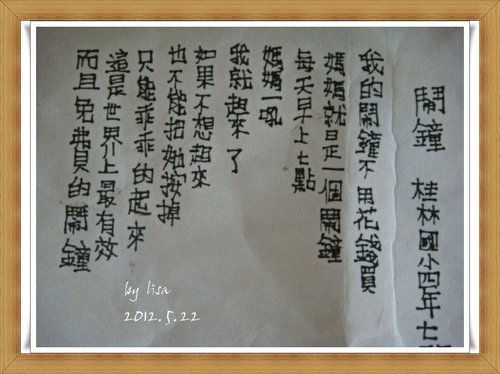 鬧鐘 桂林國小四年七
我的鬧鐘不用花錢買
媽媽就是一個鬧鐘
每天早上七點
媽媽一吼
我就起來了
如果不想起來
也不能把她按掉
只能乖乖的起來
這是世界上最有效
而且免費的鬧鐘
by lisa
2012.5.22